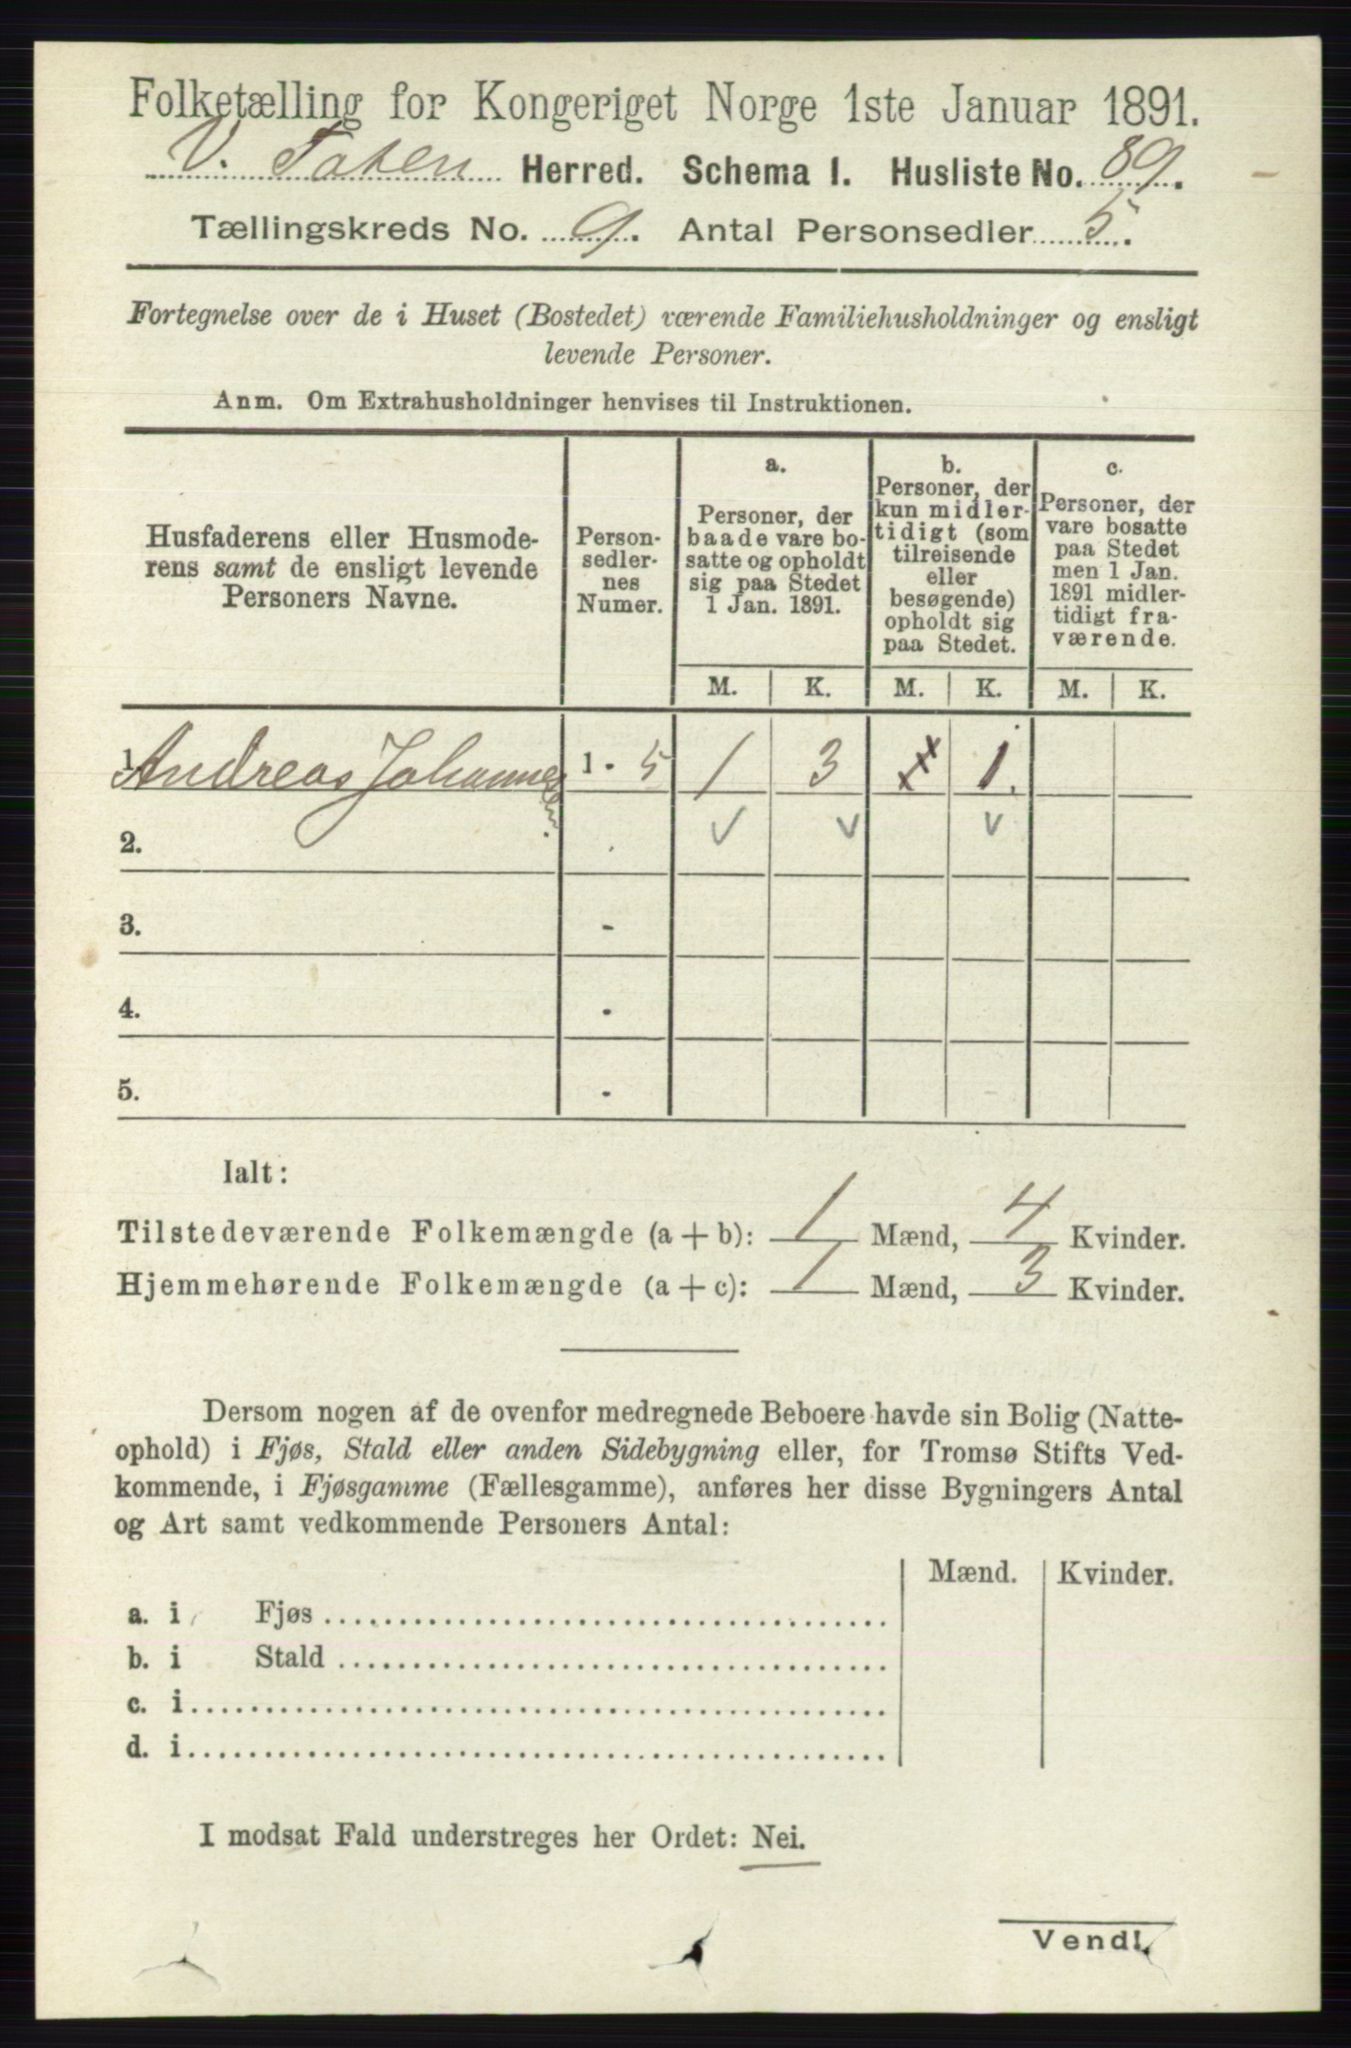 Folketælling for Kongeriget Norge 1ste Januar 1891.
V. Toten Herred. Schema 1. Husliste No. 89.
Tællingskreds No. 9. Antal Personsedler 5.
Fortegnelse over de i Huset (Bostedet) værende Familiehusholdninger og ensligt
levende Personer.
Anm. Om Extrahusholdninger henvises til Instruktionen.
Husfaderens eller Husmode-
rens samt de ensligt levende
Personers Navne.
Person-
sedler-
nes
Numer.
a.
Personer, der
baade vare bo-
satte og opholdt
sig paa Stedet
1 Jan. 1891.
b.
Personer, der
kun midler-
tidigt (som
tilreisende
eller
besøgende)
opholdt sig
paa Stedet.
c.
Personer, der
vare bosatte
paa Stedet
men 1 Jan.
1891 midler-
tidigt fra-
værende.
M. K. M. K. M. K.
1. Andreas Johannes 1 - 5 1 3 1.
2.
3. -
4. -
5. -
Ialt:
Tilstedeværende Folkemængde (a + b): 1 Mænd, 4 Kvinder.
Hjemmehørende Folkemængde (a + c): 1 Mænd, 3 Kvinder.
Dersom nogen af de ovenfor medregnede Beboere havde sin Bolig (Natte-
ophold) i Fjøs, Stald eller anden Sidebygning eller, for Tromsø Stifts Ved-
kommende, i Fjøsgamme (Fællesgamme), anføres her disse Bygningers Antal
og Art samt vedkommende Personers Antal:
Mænd. Kvinder.
a. i Fjøs
b. i Stald
c. i
d. i
I modsat Fald understreges her Ordet: Nei.
Vend!